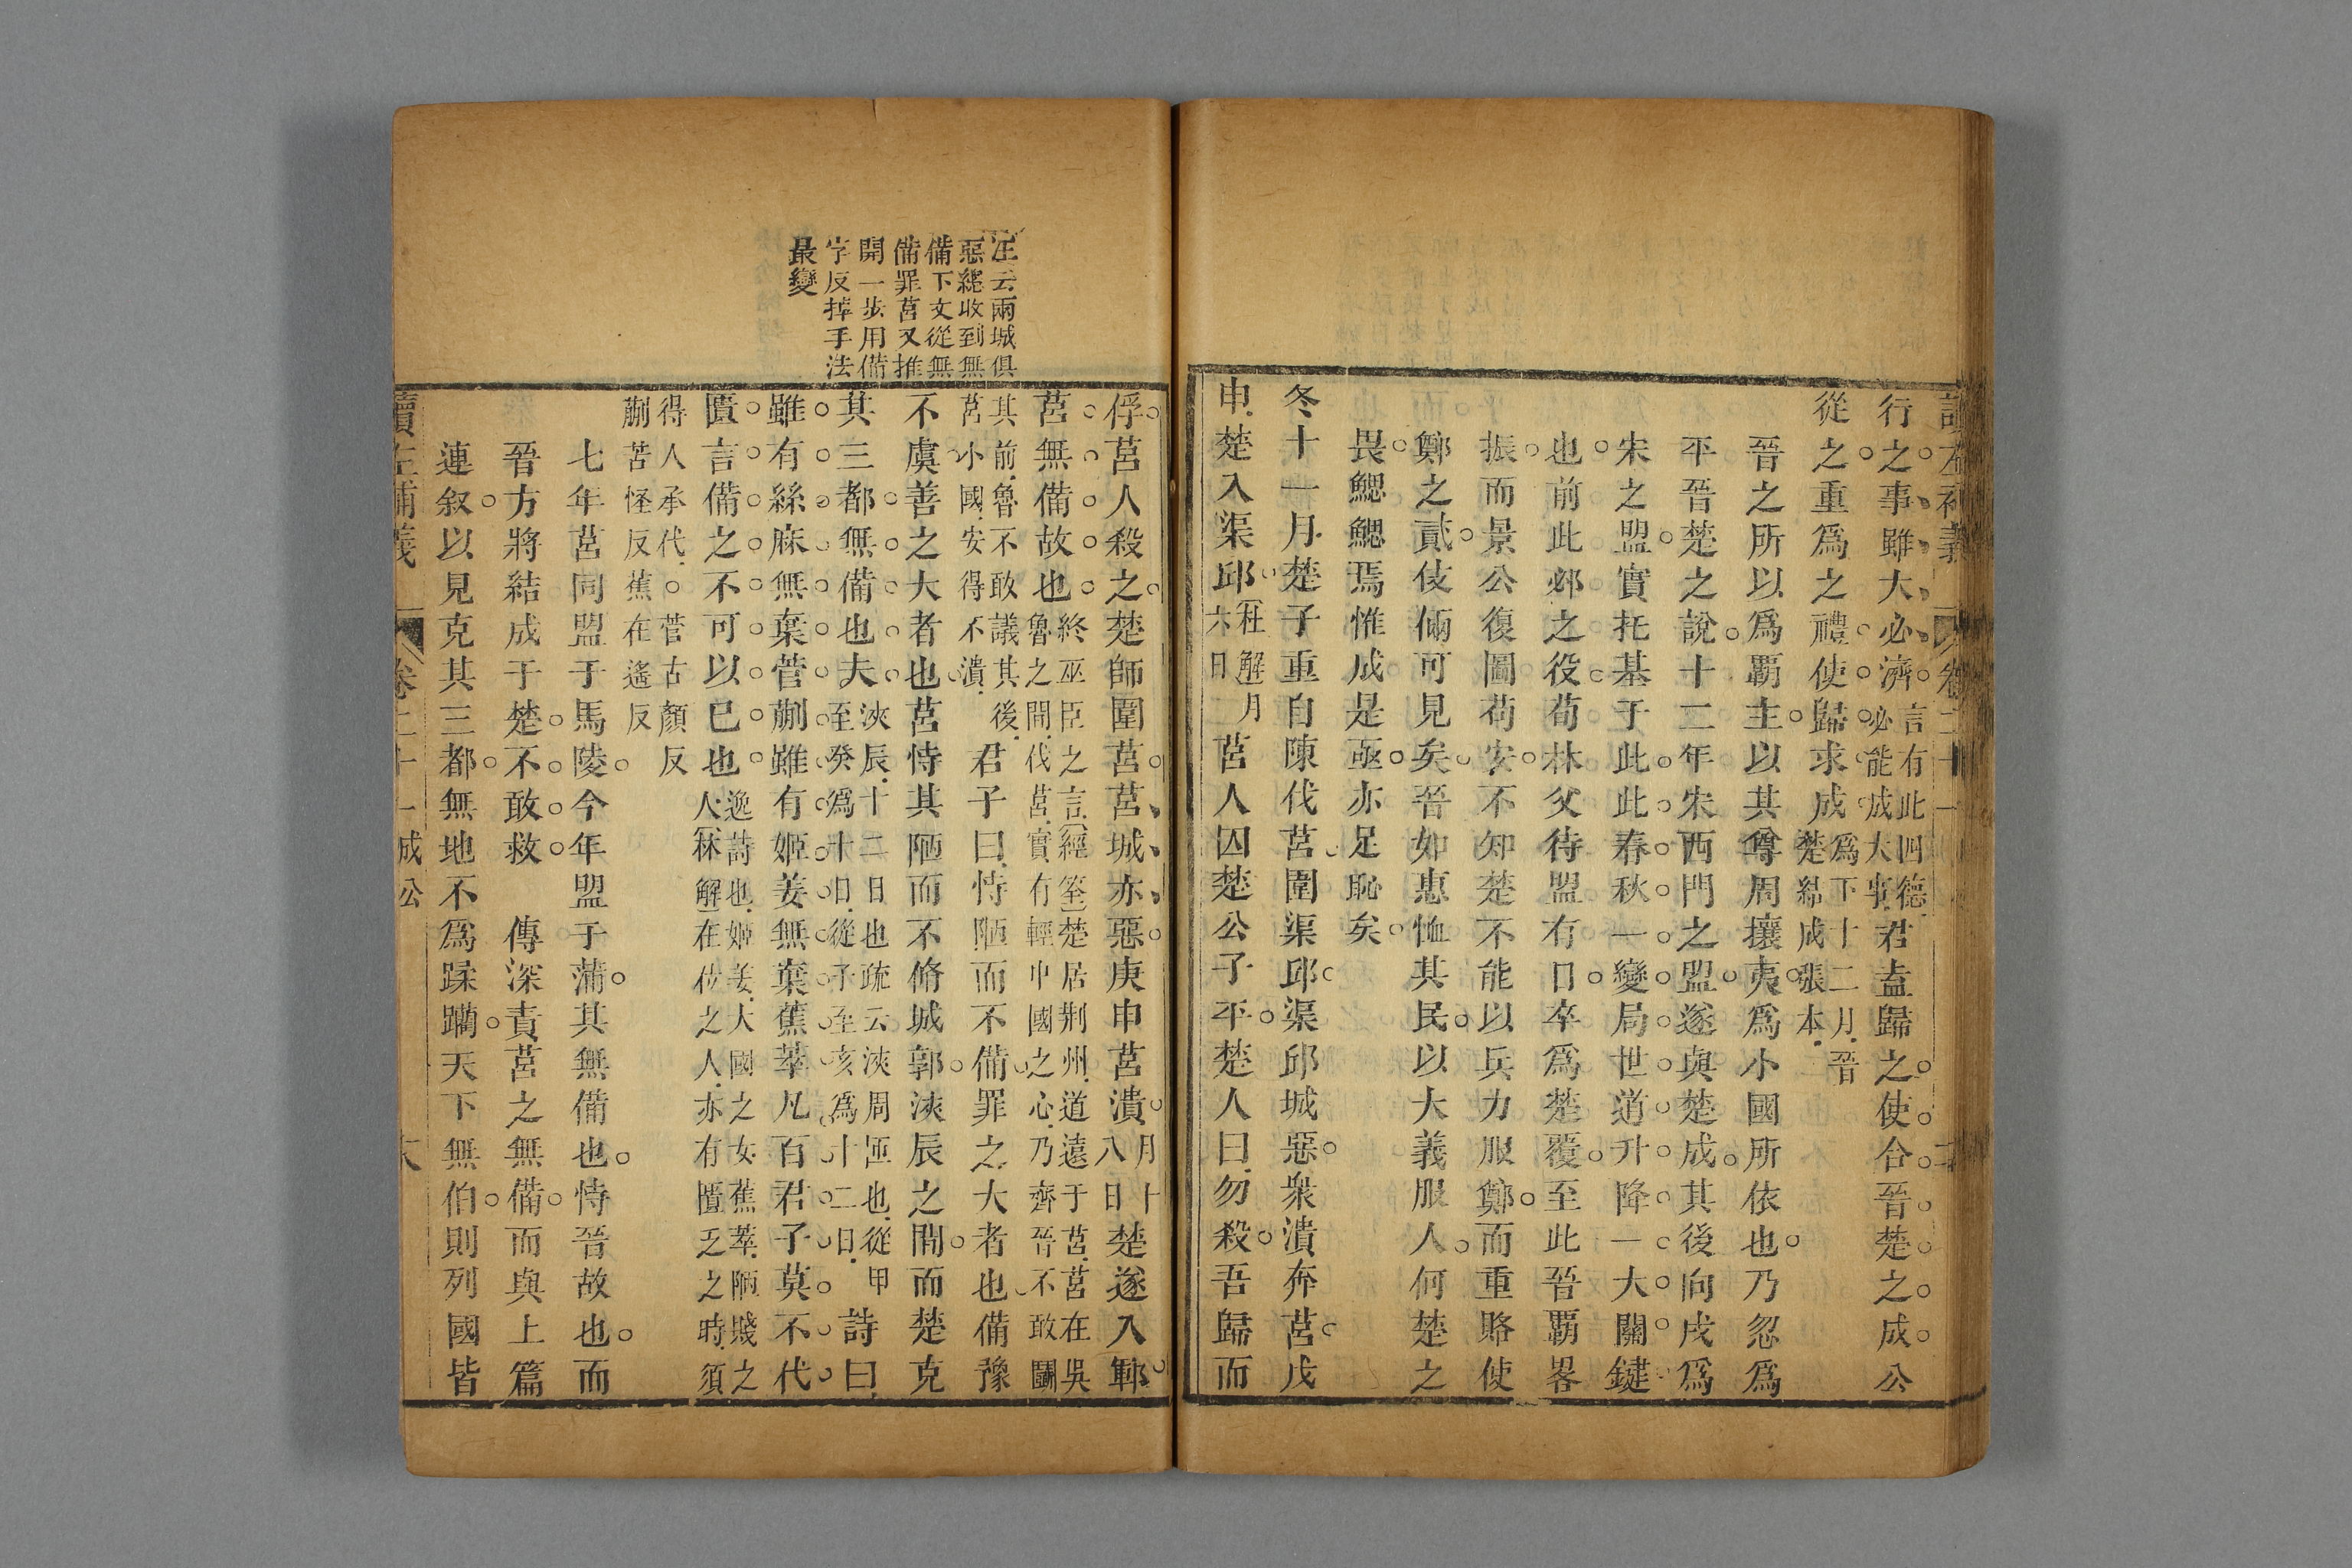 行之事雖大必濟言有此四德必能成大事君盍歸之使合晉楚之成公
從之重爲之禮使歸求成爲下十二月晉楚結成張本
晉之所以爲覇主以其尊周攘夷爲小國所依也乃忽爲
平晉楚之說十二年宋西門之盟遂與楚成其後向戌爲
宋之盟實托基于此此春秋一變局世道升降一大關鍵
也前此邲之役荀林父待盟有日卒爲楚覆至此晉覇畧
振而景公復圖苟安不知楚不能以兵力服鄭而重賂使
鄭之貳伎倆可見矣晉如惠恤其民以大義服人何楚之
畏鰓鰓焉惟成是亟亦足恥矣
冬十一月楚子重自陳伐莒圍渠邱渠邱城惡衆潰奔莒戊
申楚入渠邱杜解月六日莒人囚楚公子平楚人曰勿殺吾歸而
俘莒人殺之楚師圍莒莒城亦惡庚申莒潰月十八日楚遂入鄆
莒無備故也終巫臣之言經筌楚居荆州道遠于莒莒在吳魯之間伐莒實有輕中國之心乃齊晉不敢鬭
其前魯不敢議其後莒小國安得不潰君子曰恃陋而不備罪之大者也備豫
不虞善之大者也莒恃其陋而不脩城郭浹辰之間而楚克
其三都無備也夫浹辰十二日也疏云浹周匝也從甲至癸爲十日從子至亥爲十二日詩曰
雖有絲麻無棄菅蒯雖有姬姜無棄蕉萃凡百君子莫不代
匱言備之不可以已也逸詩也姬姜大國之女蕉萃陋賤之人林解在位之人亦有匱乏之時須
得人承代○菅古顏反蒯苦怪反蕉在遙反
七年莒同盟于馬陵今年盟于蒲其無備也恃晉故也而
晉方將結成于楚不敢救　傳深責莒之無備而與上篇
連叙以見克其三都無地不爲蹂躪天下無伯則列國皆
讀左補義　卷二十一成公　
汪云兩城俱
惡總收到無
備下文從無
備罪莒又推
開一步用備
字反掉手法
最變